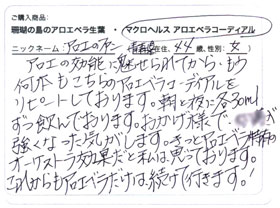 ご購入商品:
珊瑚の島のアロエベラ生葉・マクロヘルス アロエベラコーディアル
ニックネーム:アロエの 在住、44歳、性別:女)
アロエの効能に魅せられてから、もう
何本もこちらのアロエベラコーディアルを
リピートしております。朝と夜に各30ml
ずつ飲んでおります。おかげ様で、 が
強くなった気がします。きっとアロエベラ
オーケストラ効果だと私は思っております。
これからもアロエベラだけは続けて行きます!